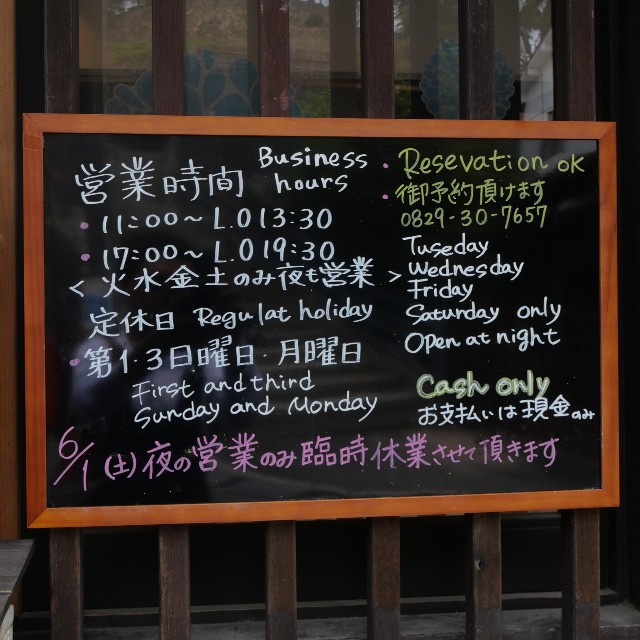 営業時間 Business hours
・11:00〜L.O 13:30
・17:00〜L.O 19:30
<火水金土のみ夜も営業>
定休日 Regulat holiday
・第1・3日曜日・月曜日
First and third
Sunday and Monday
・Resevation OK
・御予約頂けます
0829-30-7657
Tuseday
Wednesday
Friday
Saturday only
Open at night
Cash only
お支払いは現金のみ
6/1(土)夜の営業のみ臨時休業させて頂きます